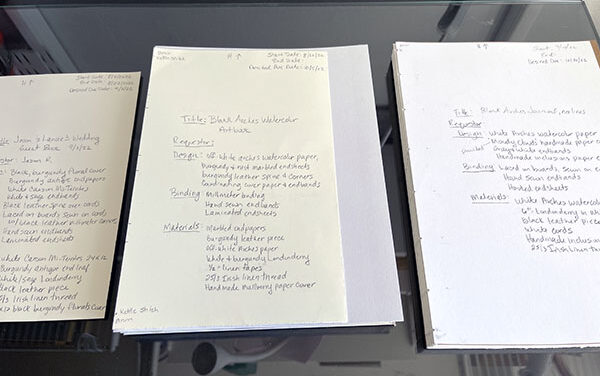 Start Date: 8/
End Date:
Desired Due Date:
Title: Jason & Lance's Wedding
Guest Book
Requestor: Jason R.
Black, burgundy floral cover
Burgundy antique endpapers
White Canson Mi-Teintes
White & sage endbands
Black leather spine over cords
Laced on boards sewn on cords
w/ black leather
Hand sewn endbands
Laminated endsheets
White Canson Mi-Teintes
Burgundy antique end leaf
White/sage Londonderry
Black leather piece
Irish linen thread
black burgundy florals cover
Kettle Stitch
Start Date:
End Date:
Desired Due Date:
Title: Blank Arches Watercolor
Artbook
Requestor:
Design: off-white arches watercolor paper,
burgundy & rose marbled endsheets
burgundy leather spine & corners
Coordinating cover paper & endbands
Binding: Millimeter binding
Hand sewn endbands
Laminated endsheets
Materials: Marbled endpapers
Burgundy leather piece
Off-white Arches paper
White & burgundy Londonderry
linen tapes
Irish linen thread
Handmade mulberry paper cover
Kettle Stitch
Start:
End:
Desired Due:
Title: Blank Arches Journal, no lines
Requestor
Design: White Arches watercolor paper
Moody clouds handmade paper
Gray & white endbands
Handmade inclusions paper
Binding: Laced on boards, sewn on
Hand sewn endbands
Hooked endsheets
Materials: White Arches watercolor
Londonderry in white
black leather piece
White cords
Handmade inclusions
Irish linen